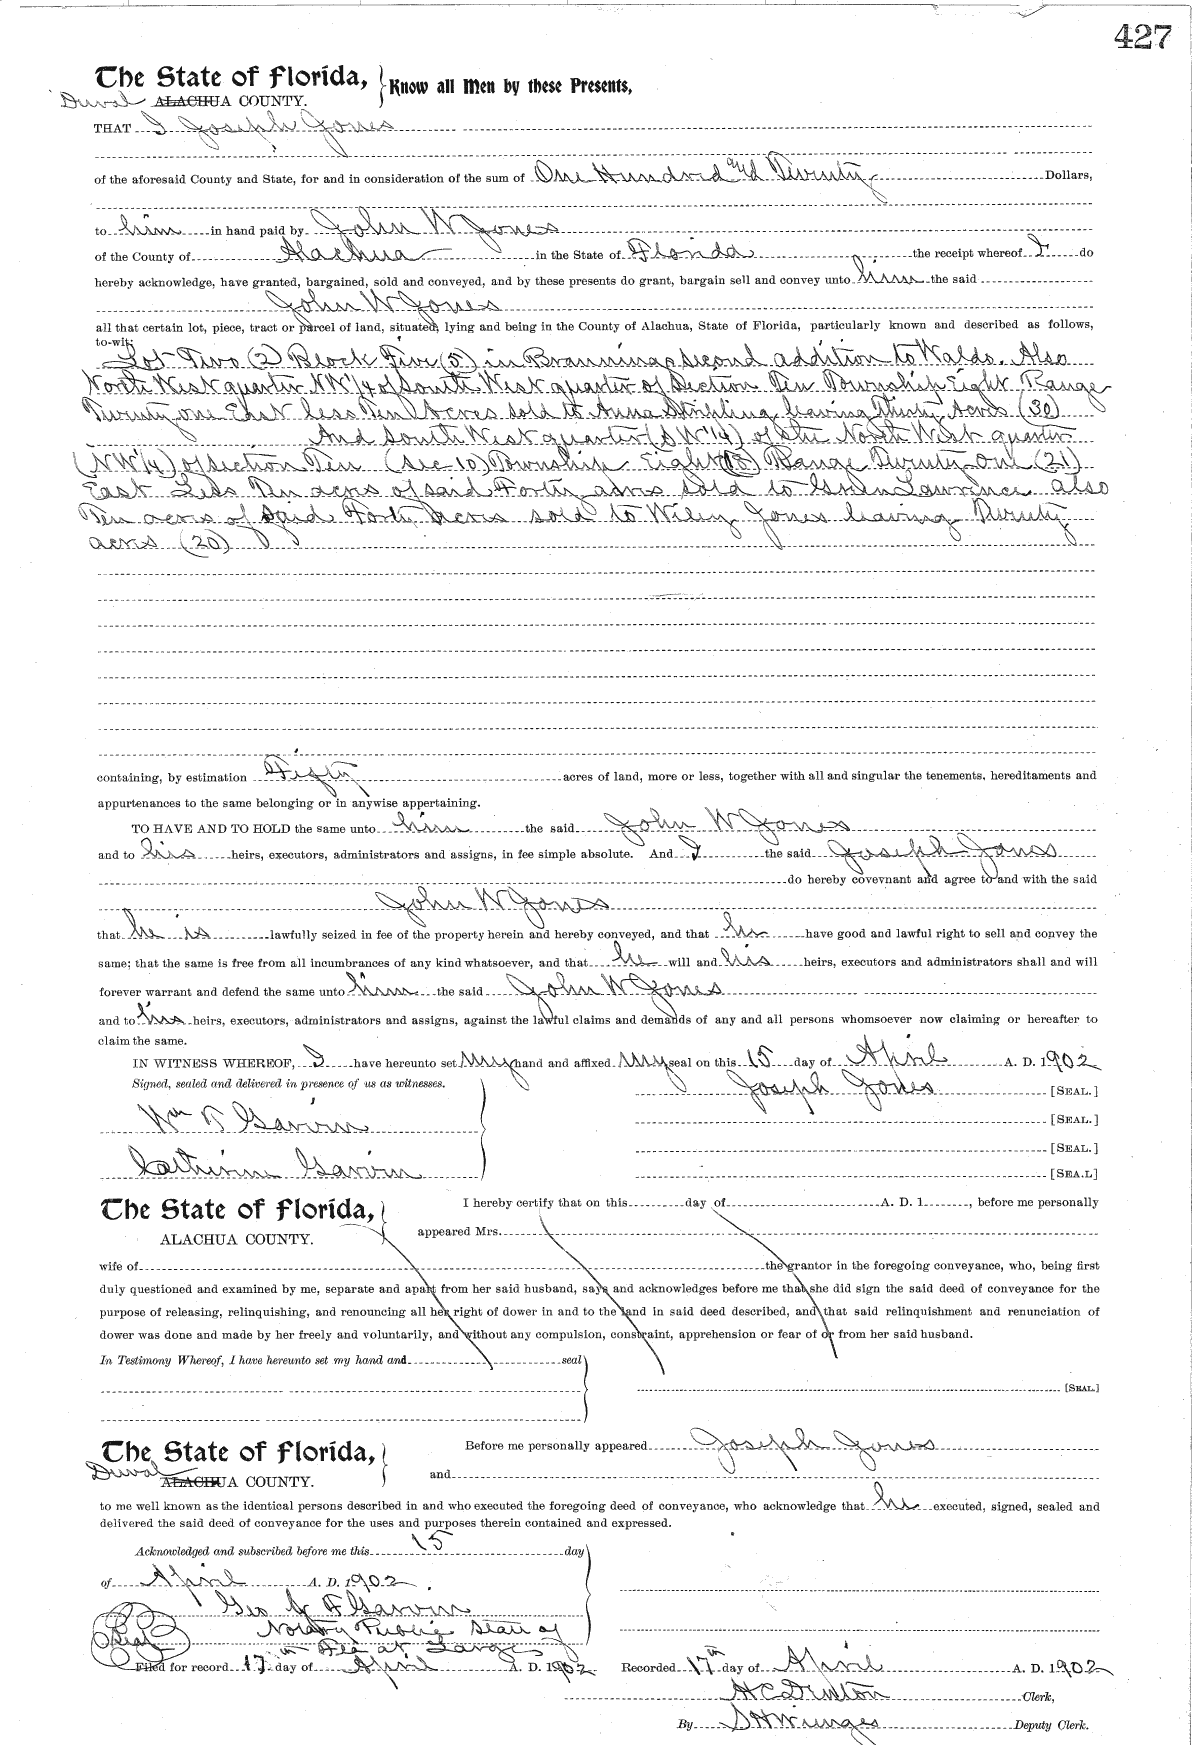 427
The State of Florida, } Know all Men by these Presents,
Duval ALACHUA COUNTY.
THAT I Joseph Jones
of the aforesaid County and State, for and in consideration of the sum of One Hundred and Twenty Dollars,
to him in hand paid by John W Jones
of the County of Alachua in the State of Florida the receipt whereof I do
hereby acknowledge, have granted, bargained, sold and conveyed, and by these presents do grant, bargain sell and convey unto him the said
John W Jones
all that certain lot, piece, tract or parcel of land, situated, lying and being in the County of Alachua, State of Florida, particularly known and described as follows,
to-wit:
Lot Two (2) Block Five (5) in Brannings second addition to Waldo. Also
North West quarter NW 1/4 of South West quarter of Section Ten Township Eight Range
Twenty one East less Ten Acres sold to Anna Stripling leaving Thirty Acres (30)
And South West quarter (SW 1/4) of the North West quarter
(NW 1/4) of Section Ten (Sec 10) Township Eight (8) Range Twenty One (21)
East Less Ten acres of said Forty acres sold to Lawrence also
Ten acres of said Forty acres sold to Wiley Jones leaving Twenty
acres (20)
containing, by estimation Fifty acres of land, more or less, together with all and singular the tenements, hereditaments and
appurtenances to the same belonging or in anywise appertaining.
TO HAVE AND TO HOLD the same unto him the said John W Jones
and to his heirs, executors, administrators and assigns, in fee simple absolute. And I the said Joseph Jones
do hereby covevnant and agree to and with the said
John W Jones
that he is lawfully seized in fee of the property herein and hereby conveyed, and that he have good and lawful right to sell and convey the
same; that the same is free from all incumbrances of any kind whatsoever, and that he will and his heirs, executors and administrators shall and will
forever warrant and defend the same unto him the said John W Jones
and to his heirs, executors, administrators and assigns, against the lawful claims and demands of any and all persons whomsoever now claiming or hereafter to
claim the same.
IN WITNESS WHEREOF, I have hereunto set my hand and affixed my seal on this 15 day of April A. D. 1902
Signed, sealed and delivered in presence of us as witnesses.
Joseph Jones [SEAL.]
Wm F Garvin [SEAL.]
[SEAL.]
Catherine Garvin [SEA.L]
The State of Florida, } I hereby certify that on this day of A. D. 1 , before me personally
ALACHUA COUNTY. appeared Mrs.
wife of the grantor in the foregoing conveyance, who, being first
duly questioned and examined by me, separate and apart from her said husband, says and acknowledges before me that she did sign the said deed of conveyance for the
purpose of releasing, relinquishing, and renouncing all her right of dower in and to the land in said deed described, and that said relinquishment and renunciation of
dower was done and made by her freely and voluntarily, and without any compulsion, constraint, apprehension or fear of or from her said husband.
In Testimony Whereof, I have hereunto set my hand and seal
[SEAL.]
The State of Florida, } Before me personally appeared Joseph Jones
Duval ALACHUA COUNTY. and
to me well known as the identical persons described in and who executed the foregoing deed of conveyance, who acknowledge that he executed, signed, sealed and
delivered the said deed of conveyance for the uses and purposes therein contained and expressed.
Acknowledged and subscribed before me this 15 day
of April A. D. 1902.
Geo F Garvin
Seal Notary Public State of
Fla at Large
Filed for record 17th day of April A. D. 1902 Recorded 17th day of April A. D. 1902
H C Denton Clerk,
By S H Wienges Deputy Clerk.